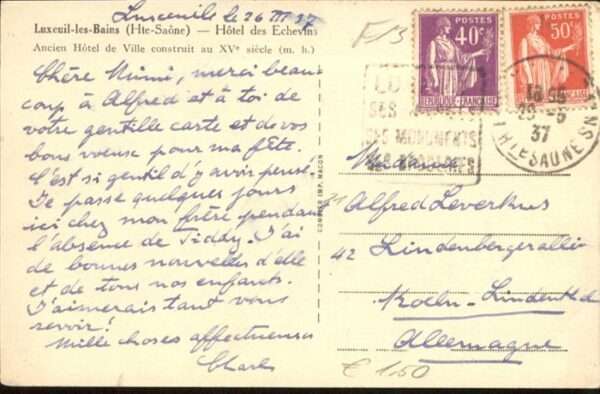 Luxeuil le 26 III 37
Luxeuil-les-Bains (Hte-Saône) — Hôtel des Echevins
Ancien Hôtel de Ville construit au XVe siècle (m. h.)
Chère Mimi, merci beau-
coup à Alfred et à toi de
votre gentille carte et de vos
bons voeux pour ma fête.
C'est si gentil d'y avoir pensé.
Je passe quelques jours
ici chez mon frère pendant
l'absence de Tiddy. J'ai
de bonnes nouvelles d'elle
et de tous nos enfants.
J'aimerais tant vous
revoir!
Mille choses affectueuses
Charles
COMBIER IMP. MACON
F/3
POSTES
40c
RÉPUBLIQUE FRANÇAISE
POSTES
50c
LU
SES
SES MONUMENTS
SES
37
HTE SAÔNE
Madame
Alfred Leverkus
42 Lindenburgerallee
Koeln-Lindenthal
Allemagne
€ 1.50